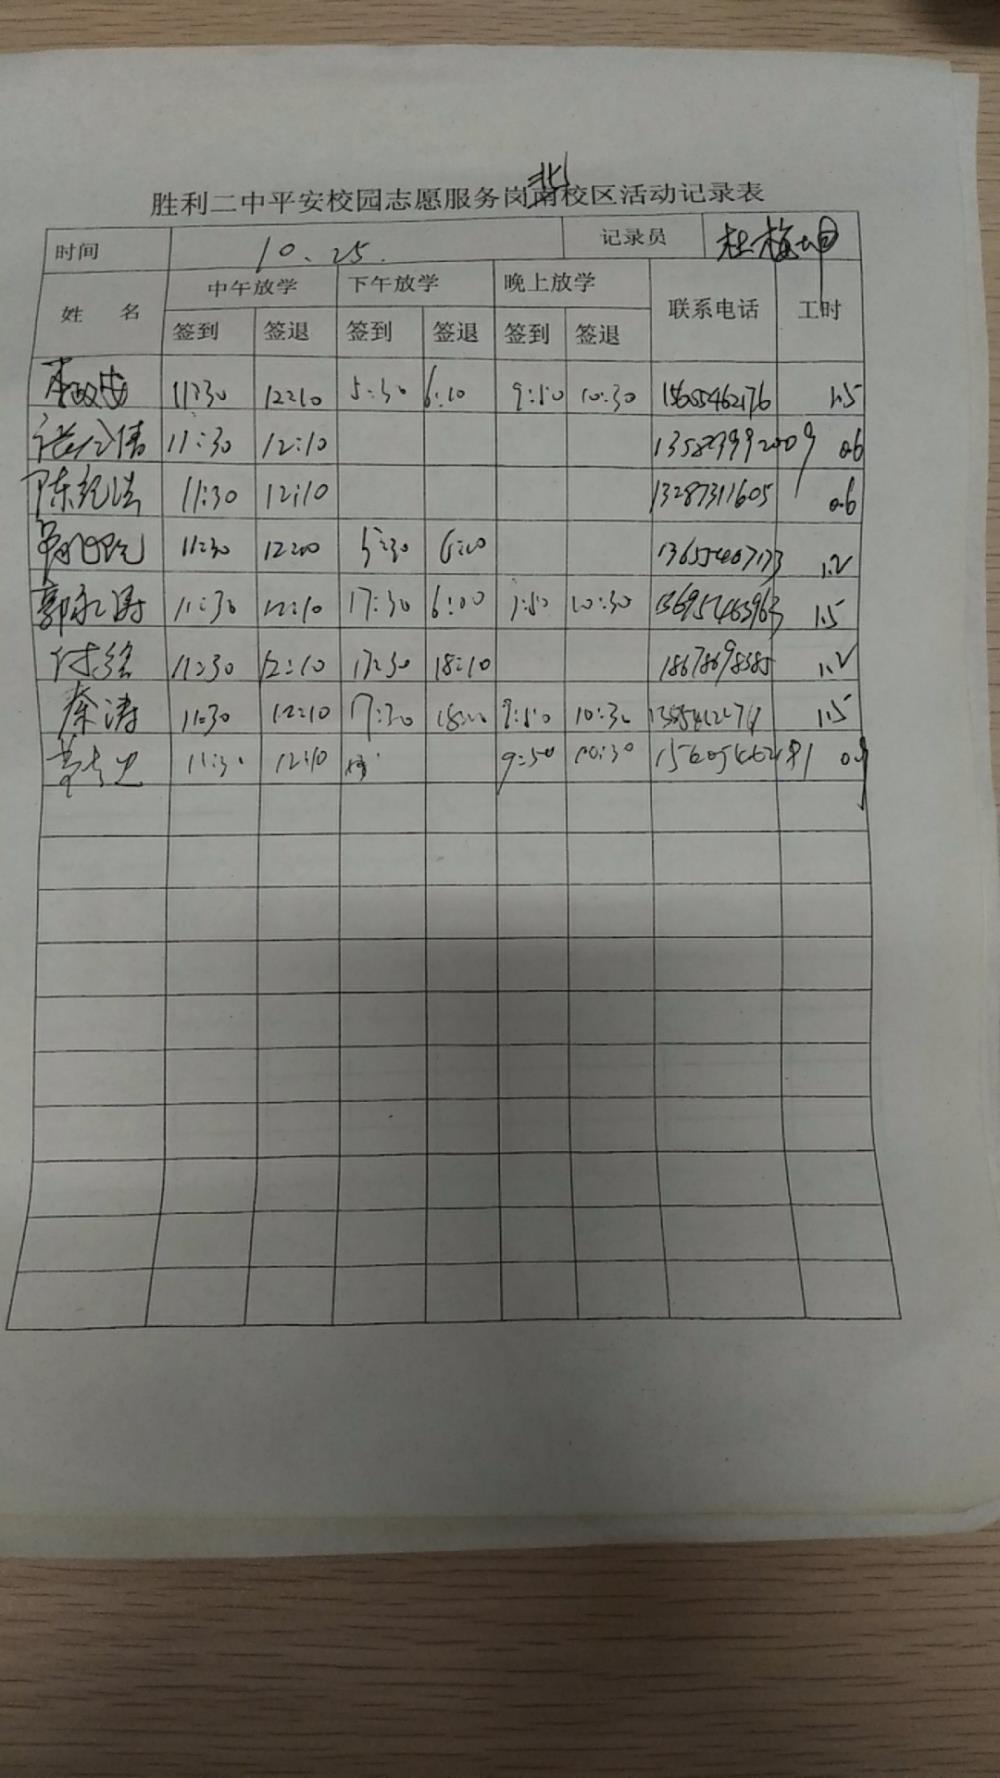 北
胜利二中平安校园志愿服务岗南校区活动记录表
时间 10.25. 记录员 杜梅坤
姓 名 中午放学 下午放学 晚上放学 联系电话 工时
签到 签退 签到 签退 签到 签退
11:30 12:10 5:30 6:10 9:50 10:30 15605462176 1.5
11:30 12:10 135823992009 0.6
陈纪浩 11:30 12:10 13287311605 0.6
11:30 12:00 5:30 6:00 1.2
郭永海 11:30 12:10 17:30 6:00 9:50 10:30 13695463963 1.5
付铭 11:30 12:10 17:30 18:10 18678698385 1.2
秦涛 11:30 12:10 17:30 18:10 9:50 10:30 1.5
11:30 12:10 9:50 10:30 15605462481 0.9